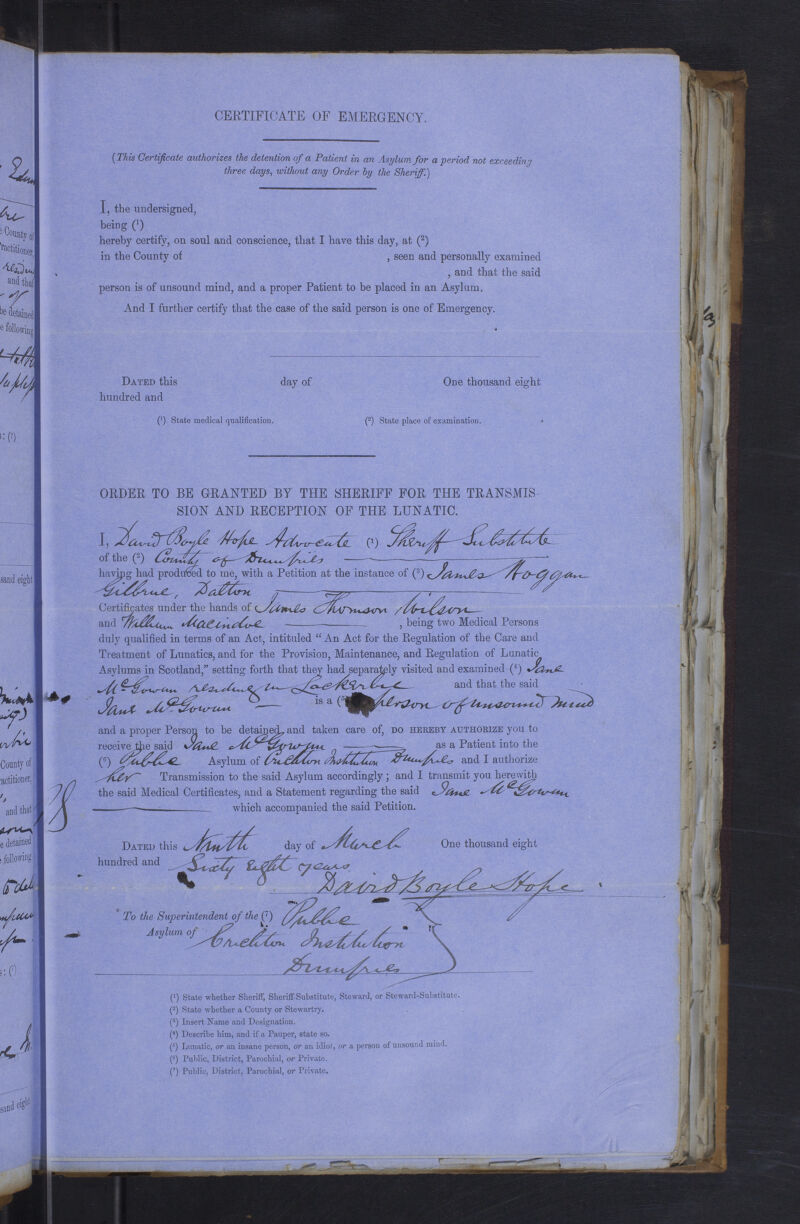 CERTIFICATE OF EMERGENCY.
(This Certificate authorizes the detention of a Patient in an Asylum for a period not exceeding
three days, without any Order by the Sheriff.)
I, the undersigned,
being (¹)
hereby certify, on soul and conscience, that I have this day, at (²)
in the County of , seen and personally examined
, and that the said
person is of unsound mind, and a proper Patient to be placed in an Asylum.
And I further certify that the case of the said person is one of Emergency.
DATED this day of One thousand eight
hundred and
(¹) State medical qualification. (²) State place of examination.
ORDER TO BE GRANTED BY THE SHERIFF FOR THE TRANSMIS-
SION AND RECEPTION OF THE LUNATIC.
I, David Boyle Hope Advocate (¹) Sheriff Substitute
of the (²) County of Dumfries
having had produced to me, with a Petition at the instance of (³) James Hoggan
Gillbrae, Dalton
Certificates under the hands of James Thomson Wilson
and William Macindoe , being two Medical Persons
duly qualified in terms of an Act, intituled “An Act for the Regulation of the Care and
Treatment of Lunatics, and for the Provision, Maintenance, and Regulation of Lunatic
Asylums in Scotland,” setting forth that they had separately visited and examined (⁴) Jane
McGowan residing in Lockerbie and that the said
Jane McGowan is a (⁵) person of unsound mind
and a proper Person to be detained, and taken care of, DO HEREBY AUTHORIZE you to
receive the said Jane McGowan as a Patient into the
(⁶) Public Asylum of Crichton Institution Dumfries and I authorize
her Transmission to the said Asylum accordingly; and I transmit you herewith
the said Medical Certificates, and a Statement regarding the said Jane McGowan
which accompanied the said Petition.
DATED this Ninth day of March One thousand eight
hundred and Sixty Eight years
David Boyle Hope
To the Superintendent of the (⁷) Public
Asylum of Crichton Institution
Dumfries
(¹) State whether Sheriff, Sheriff-Substitute, Steward, or Steward-Substitute.
(²) State whether a County or Stewartry.
(³) Insert Name and Designation.
(⁴) Describe him, and if a Pauper, state so.
(⁵) Lunatic, or an insane person, or an idiot, or a person of unsound mind.
(⁶) Public, District, Parochial, or Private.
(⁷) Public, District, Parochial, or Private.